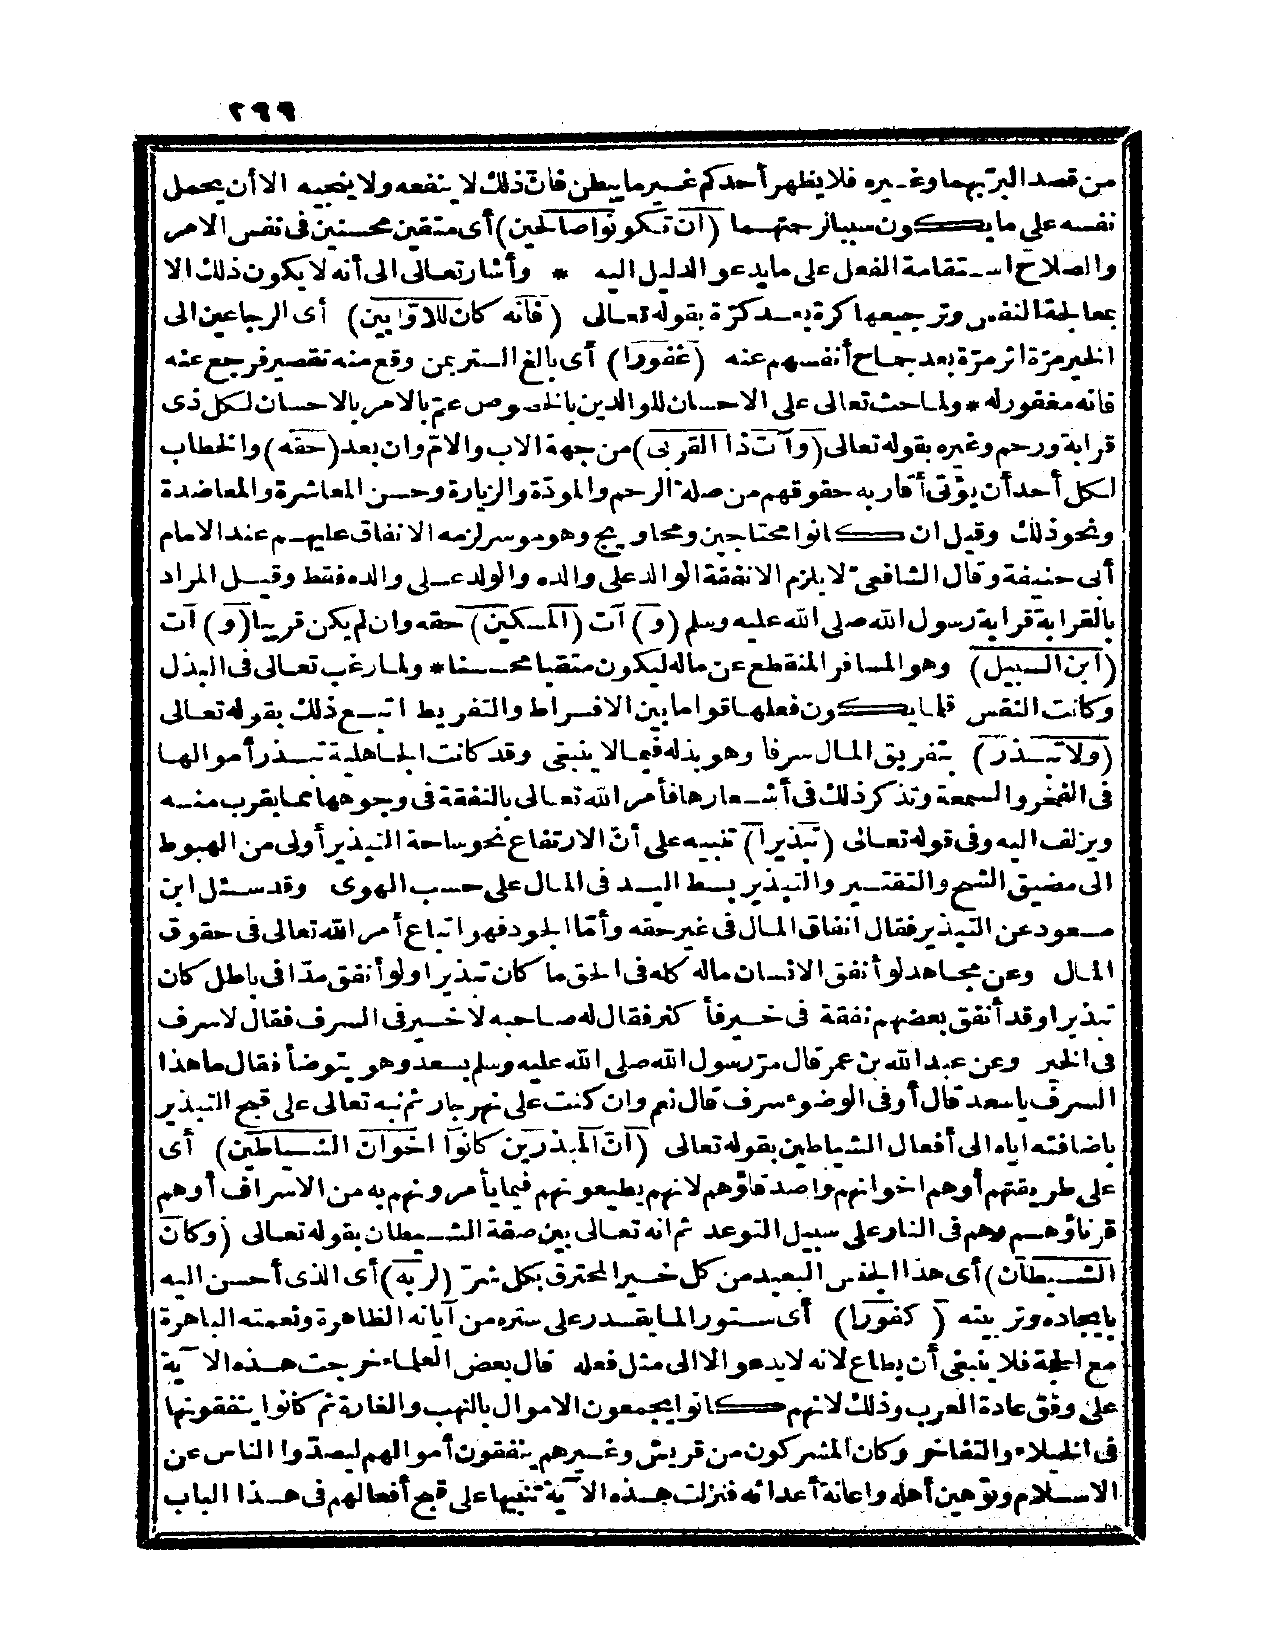 ٢٩٩
من قصد البرّ بهما وغيره فلا يظهر أحدكم غير ما يبطن فانّ ذلك لا ينفعه ولا ينجيه الا أن يحمل
نفسه على ما يكون سببا لرحمتهما (ان تكونوا صالحين) أى متقين محسنين فى نفس الامر
والصلاح استقامة الفعل على ما يدعو الدليل اليه * وأشار تعالى الى أنه لا يكون ذلك الا
بمعالجة النفس وترجيعها كرة بعد كرّة بقوله تعالى (فانه كان للاوّابين) أى الرجاعين الى
الخير مرّة اثر مرّة بعد جماح أنفسهم عنه (غفورا) أى بالغ الستر بمن وقع منه تقصير فرجع عنه
فانه مغفور له * ولما حث تعالى على الاحسان للوالدين بالخصوص عمّ بالامر بالاحسان لكل ذى
قرابة ورحم وغيره بقوله تعالى (وآت ذا القربى) من جهة الاب والامّ وان بعد (حقه) والخطاب
لكل أحد أن يؤتى أقاربه حقوقهم من صلة الرحم والمودّة والزيارة وحسن المعاشرة والمعاضدة
ونحو ذلك وقيل ان كانوا محتاجين ومحاويج وهو موسر لزمه الانفاق عليهم عند الامام
أبى حنيفة وقال الشافعى لا يلزم الا نفقة الوالد على والده والولد على والده فقط وقيل المراد
بالقرابة قرابة رسول الله صلى الله عليه وسلم (و) آت (المسكين) حقه وان لم يكن قريبا (و) آت
(ابن السبيل) وهو المسافر المنقطع عن ماله ليكون متقيا محسنا * ولما رغب تعالى فى البذل
وكانت النفس قلما يكون فعلها قواما بين الافراط والتفريط اتبع ذلك بقوله تعالى
(ولا تبذر) بتفريق المال سرفا وهو بذله فيما لا ينبغى وقد كانت الجاهلية تبذر أموالها
فى الفخر والسمعة وتذكر ذلك فى أشعارها فأمر الله تعالى بالنفقة فى وجوهها مما يقرب منه
ويزلف اليه وفى قوله تعالى (تبذيرا) تنبيه على أنّ الارتفاع نحو ساحة التبذير أولى من الهبوط
الى مضيق الشح والتقتير والتبذير بسط اليد فى المال على حسب الهوى وقد سئل ابن
مسعود عن التبذير فقال انفاق المال فى غير حقه وأمّا الجود فهو اتباع أمر الله تعالى فى حقوق
المال وعن مجاهد لو أنفق الانسان ماله كله فى الحق ما كان تبذيرا ولو أنفق مدّا فى باطل كان
تبذيرا وقد أنفق بعضهم نفقة فى خير فأكثر فقال له صاحبه لا خير فى السرف فقال لا سرف
فى الخير وعن عبد الله بن عمر قال مرّ رسول الله صلى الله عليه وسلم بسعد وهو يتوضأ فقال ما هذا
السرف يا سعد قال أوفى الوضوء سرف قال نعم وان كنت على نهر جار ثم نبه تعالى على قبح التبذير
باضافته اياه الى أفعال الشياطين بقوله تعالى (انّ المبذرين كانوا اخوان الشياطين) أى
على طريقتهم أو هم اخوانهم وأصدقاؤهم لانهم يطيعونهم فيما يأمرونهم به من الاسراف أو هم
قرناؤهم وهم فى النار على سبيل التوعد ثم انه تعالى بين صفة الشيطان بقوله تعالى (وكان
الشيطان) أى هذا الجنس البعيد من كل خير المحترق بكل شرّ (لربه) أى الذى أحسن اليه
بايجاده وتربيته (كفورا) أى ستورا لما يقدر على ستره من آياته الظاهرة ونعمته الباهرة
مع الحجة فلا ينبغى أن يطاع لانه لا يدعو الا الى مثل فعله قال بعض العلماء خرجت هذه الآية
على وفق عادة العرب وذلك لانهم كانوا يجمعون الاموال بالنهب والغارة ثم كانوا ينفقونها
فى الخيلاء والتفاخر وكان المشركون من قريش وغيرهم ينفقون أموالهم ليصدّوا الناس عن
الاسلام وتوهين أهله واعانة أعدائه فنزلت هذه الآية تنبيها على قبح أفعالهم فى هذا الباب